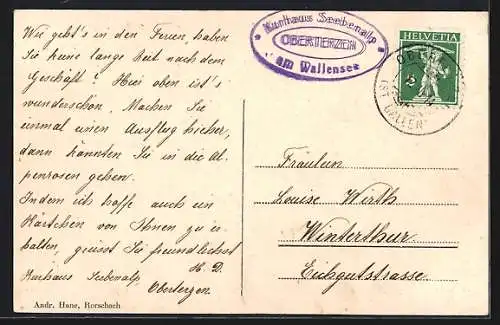 Wie geht's in den Ferien, haben
Sie keine lange Zeit nach dem
Geschäft? Hier oben ist's
wunderschön. Machen Sie
einmal einen Ausflug hieher,
dann könnten Sie in die Al-
penrosen gehen.
Indem ich hoffe auch ein
Kärtchen von Ihnen zu er-
halten, grüsst Sie freundlichst
H. D.
Kurhaus Seebenalp
Oberterzen.
Andr. Hane, Rorschach
Kurhaus Seebenalp
OBERTERZEN
am Wallensee
HELVETIA
OBER
(ST. GALLEN)
Fräulein
Louise Wirth
Winterthur
Eichgutstrasse.